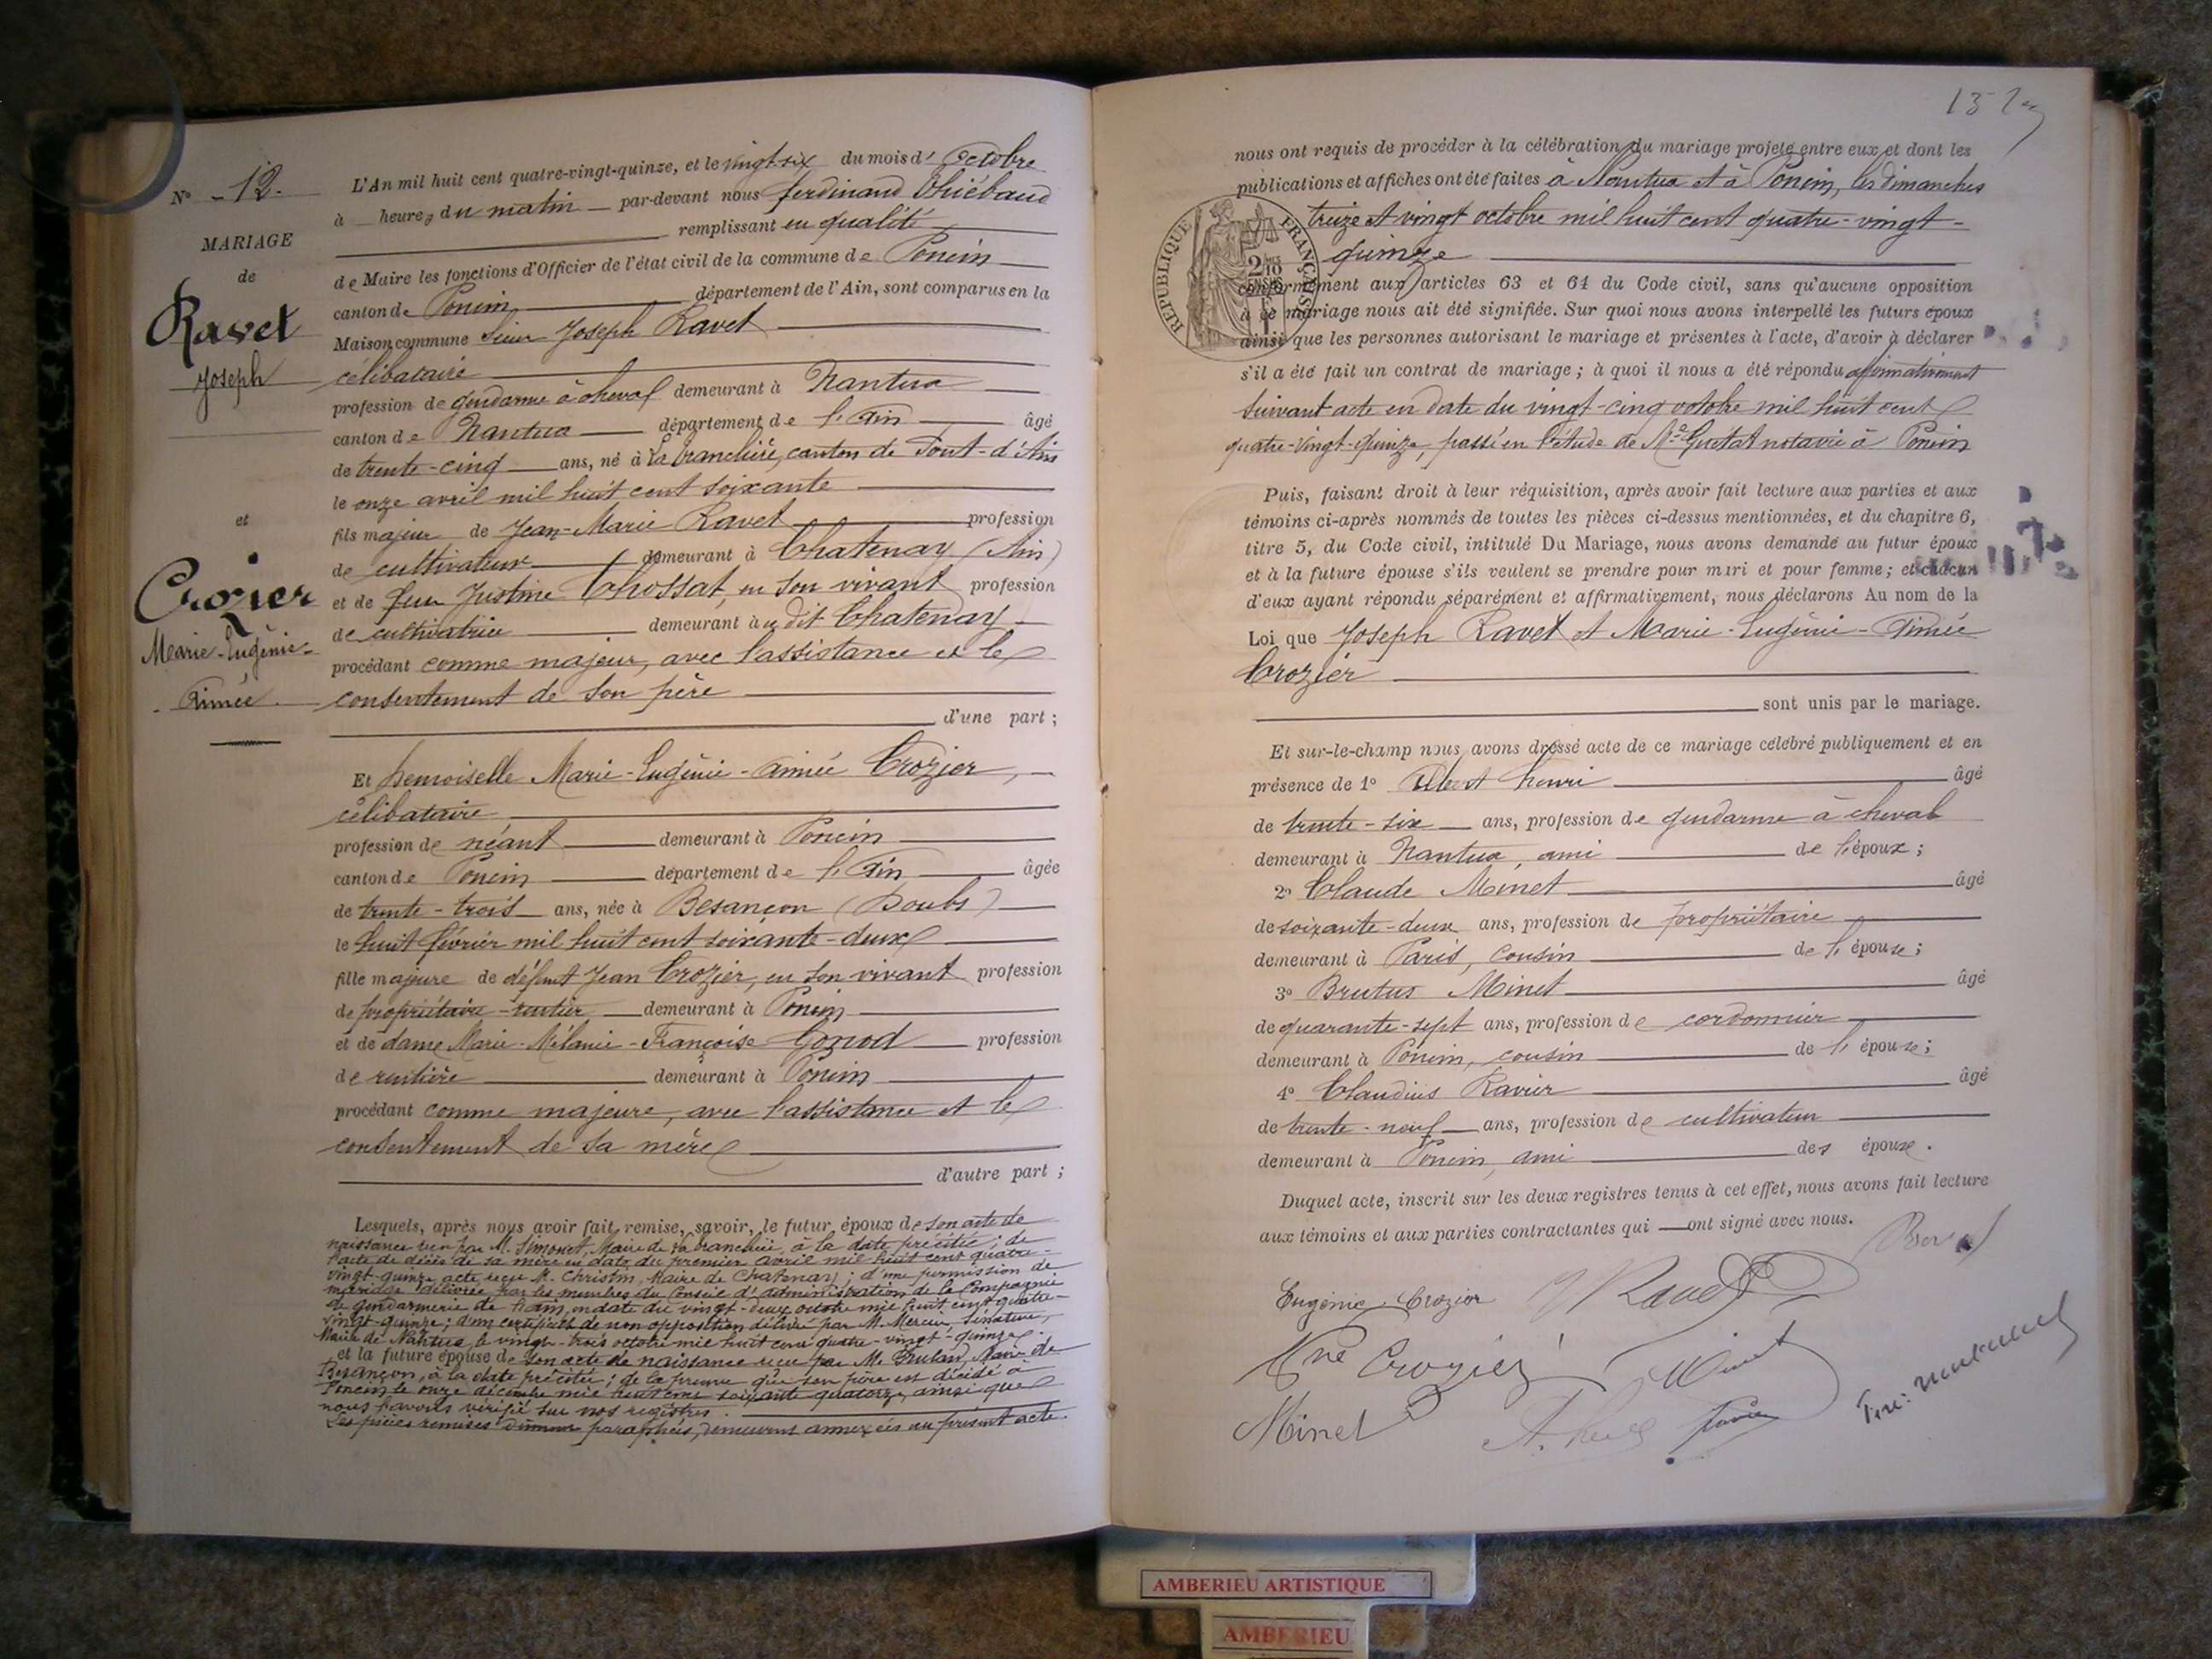 N° - 12. -
MARIAGE
de
Ravet
Joseph
et
Crozier
Marie-Eugénie-
Aimée.
L'An mil huit cent quatre-vingt-quinze, et le vingt-six du mois d' Octobre
à heures du matin par-devant nous ferdinand Thiébaud
remplissant en qualité
de Maire les fonctions d'Officier de l'état civil de la commune de Poncin
canton de Poncin département de l'Ain, sont comparus en la
Maison commune Sieur Joseph Ravet
célibataire
profession de gendarme à cheval demeurant à Nantua
canton de Nantua département de l'Ain âgé
de trente-cinq ans, né à La Tranclière, canton de Pont-d'Ain
le onze avril mil huit cent soixante
fils majeur de Jean-Marie Ravet profession
de cultivateur demeurant à Chatenay (Ain)
et de feue Justine Chossat, en son vivant profession
de cultivatrice demeurant au dit Chatenay
procédant comme majeur, avec l'assistance et le
consentement de son père
d'une part ;
Et Demoiselle Marie-Eugénie-Aimée Crozier,
célibataire
profession de néant demeurant à Poncin
canton de Poncin département de l'Ain âgée
de trente-trois ans, née à Besançon (Doubs)
le huit février mil huit cent soixante-deux
fille majeure de défunt Jean Crozier, en son vivant profession
de propriétaire-rentier demeurant à Poncin
et de dame Marie-Mélanie-Françoise Gonod profession
de rentière demeurant à Poncin
procédant comme majeure, avec l'assistance et le
consentement de sa mère
d'autre part ;
Lesquels, après nous avoir fait remise, savoir, le futur époux de son acte de
naissance reçu par M. Simonet, Maire de La Tranclière, à la date précitée ; de
l'acte de décès de sa mère en date du premier avril mil huit cent quatre-
vingt-quinze, acte reçu M. Christin, Maire de Chatenay ; d'une permission de
mariage délivrée par les membres du Conseil d'administration de la Compagnie
de gendarmerie de l'ain, en date du vingt-deux octobre mil huit cent quatre-
vingt-quinze ; d'un certificat de non opposition délivré par M. Mercier, Sénateur,
Maire de Nantua, le vingt-trois octobre mil huit cent quatre-vingt-quinze.
et la future épouse de son acte de naissance reçu par M. Maire de
Besançon, à la date précitée ; de la preuve que son père est décédé à
Poncin le onze décembre mil huit cent soixante quatorze, ainsi que
nous l'avons vérifié sur nos registres.
Les pièces remises dûment paraphées, demeurent annexées au présent acte.
nous ont requis de procéder à la célébration du mariage projeté entre eux et dont les
publications et affiches ont été faites à Nantua et à Poncin, les dimanches
treize et vingt octobre mil huit cent quatre-vingt-
quinze
RÉPUBLIQUE FRANÇAISE
conformément aux articles 63 et 64 du Code civil, sans qu'aucune opposition
à ce mariage nous ait été signifiée. Sur quoi nous avons interpellé les futurs époux
ainsi que les personnes autorisant le mariage et présentes à l'acte, d'avoir à déclarer
s'il a été fait un contrat de mariage ; à quoi il nous a été répondu affirmativement
suivant acte en date du vingt-cinq octobre mil huit cent
quatre-vingt-quinze, passé en l'étude de Me Gustat notaire à Poncin
Puis, faisant droit à leur réquisition, après avoir fait lecture aux parties et aux
témoins ci-après nommés de toutes les pièces ci-dessus mentionnées, et du chapitre 6,
titre 5, du Code civil, intitulé Du Mariage, nous avons demandé au futur époux
et à la future épouse s'ils veulent se prendre pour mari et pour femme ; et chacun
d'eux ayant répondu séparément et affirmativement, nous déclarons Au nom de la
Loi que Joseph Ravet et Marie-Eugénie-Aimée
Crozier
sont unis par le mariage.
Et sur-le-champ nous avons dressé acte de ce mariage célébré publiquement et en
présence de 1° Albert henri âgé
de trente-six ans, profession de gendarme à cheval
demeurant à Nantua, ami de l'époux ;
2° Claude Minet âgé
de soixante-deux ans, profession de propriétaire
demeurant à Paris, cousin de l'épouse ;
3° Brutus Minet âgé
de quarante-sept ans, profession de cordonnier
demeurant à Poncin, cousin de l'épouse ;
4° Claudius Ravier âgé
de trente-neuf ans, profession de cultivateur
demeurant à Poncin, ami des époux.
Duquel acte, inscrit sur les deux registres tenus à cet effet, nous avons fait lecture
aux témoins et aux parties contractantes qui ont signé avec nous.
Eugénie Crozier J Ravet
Mne Crozier Minet
Minet
AMBERIEU ARTISTIQUE
AMBERIEU